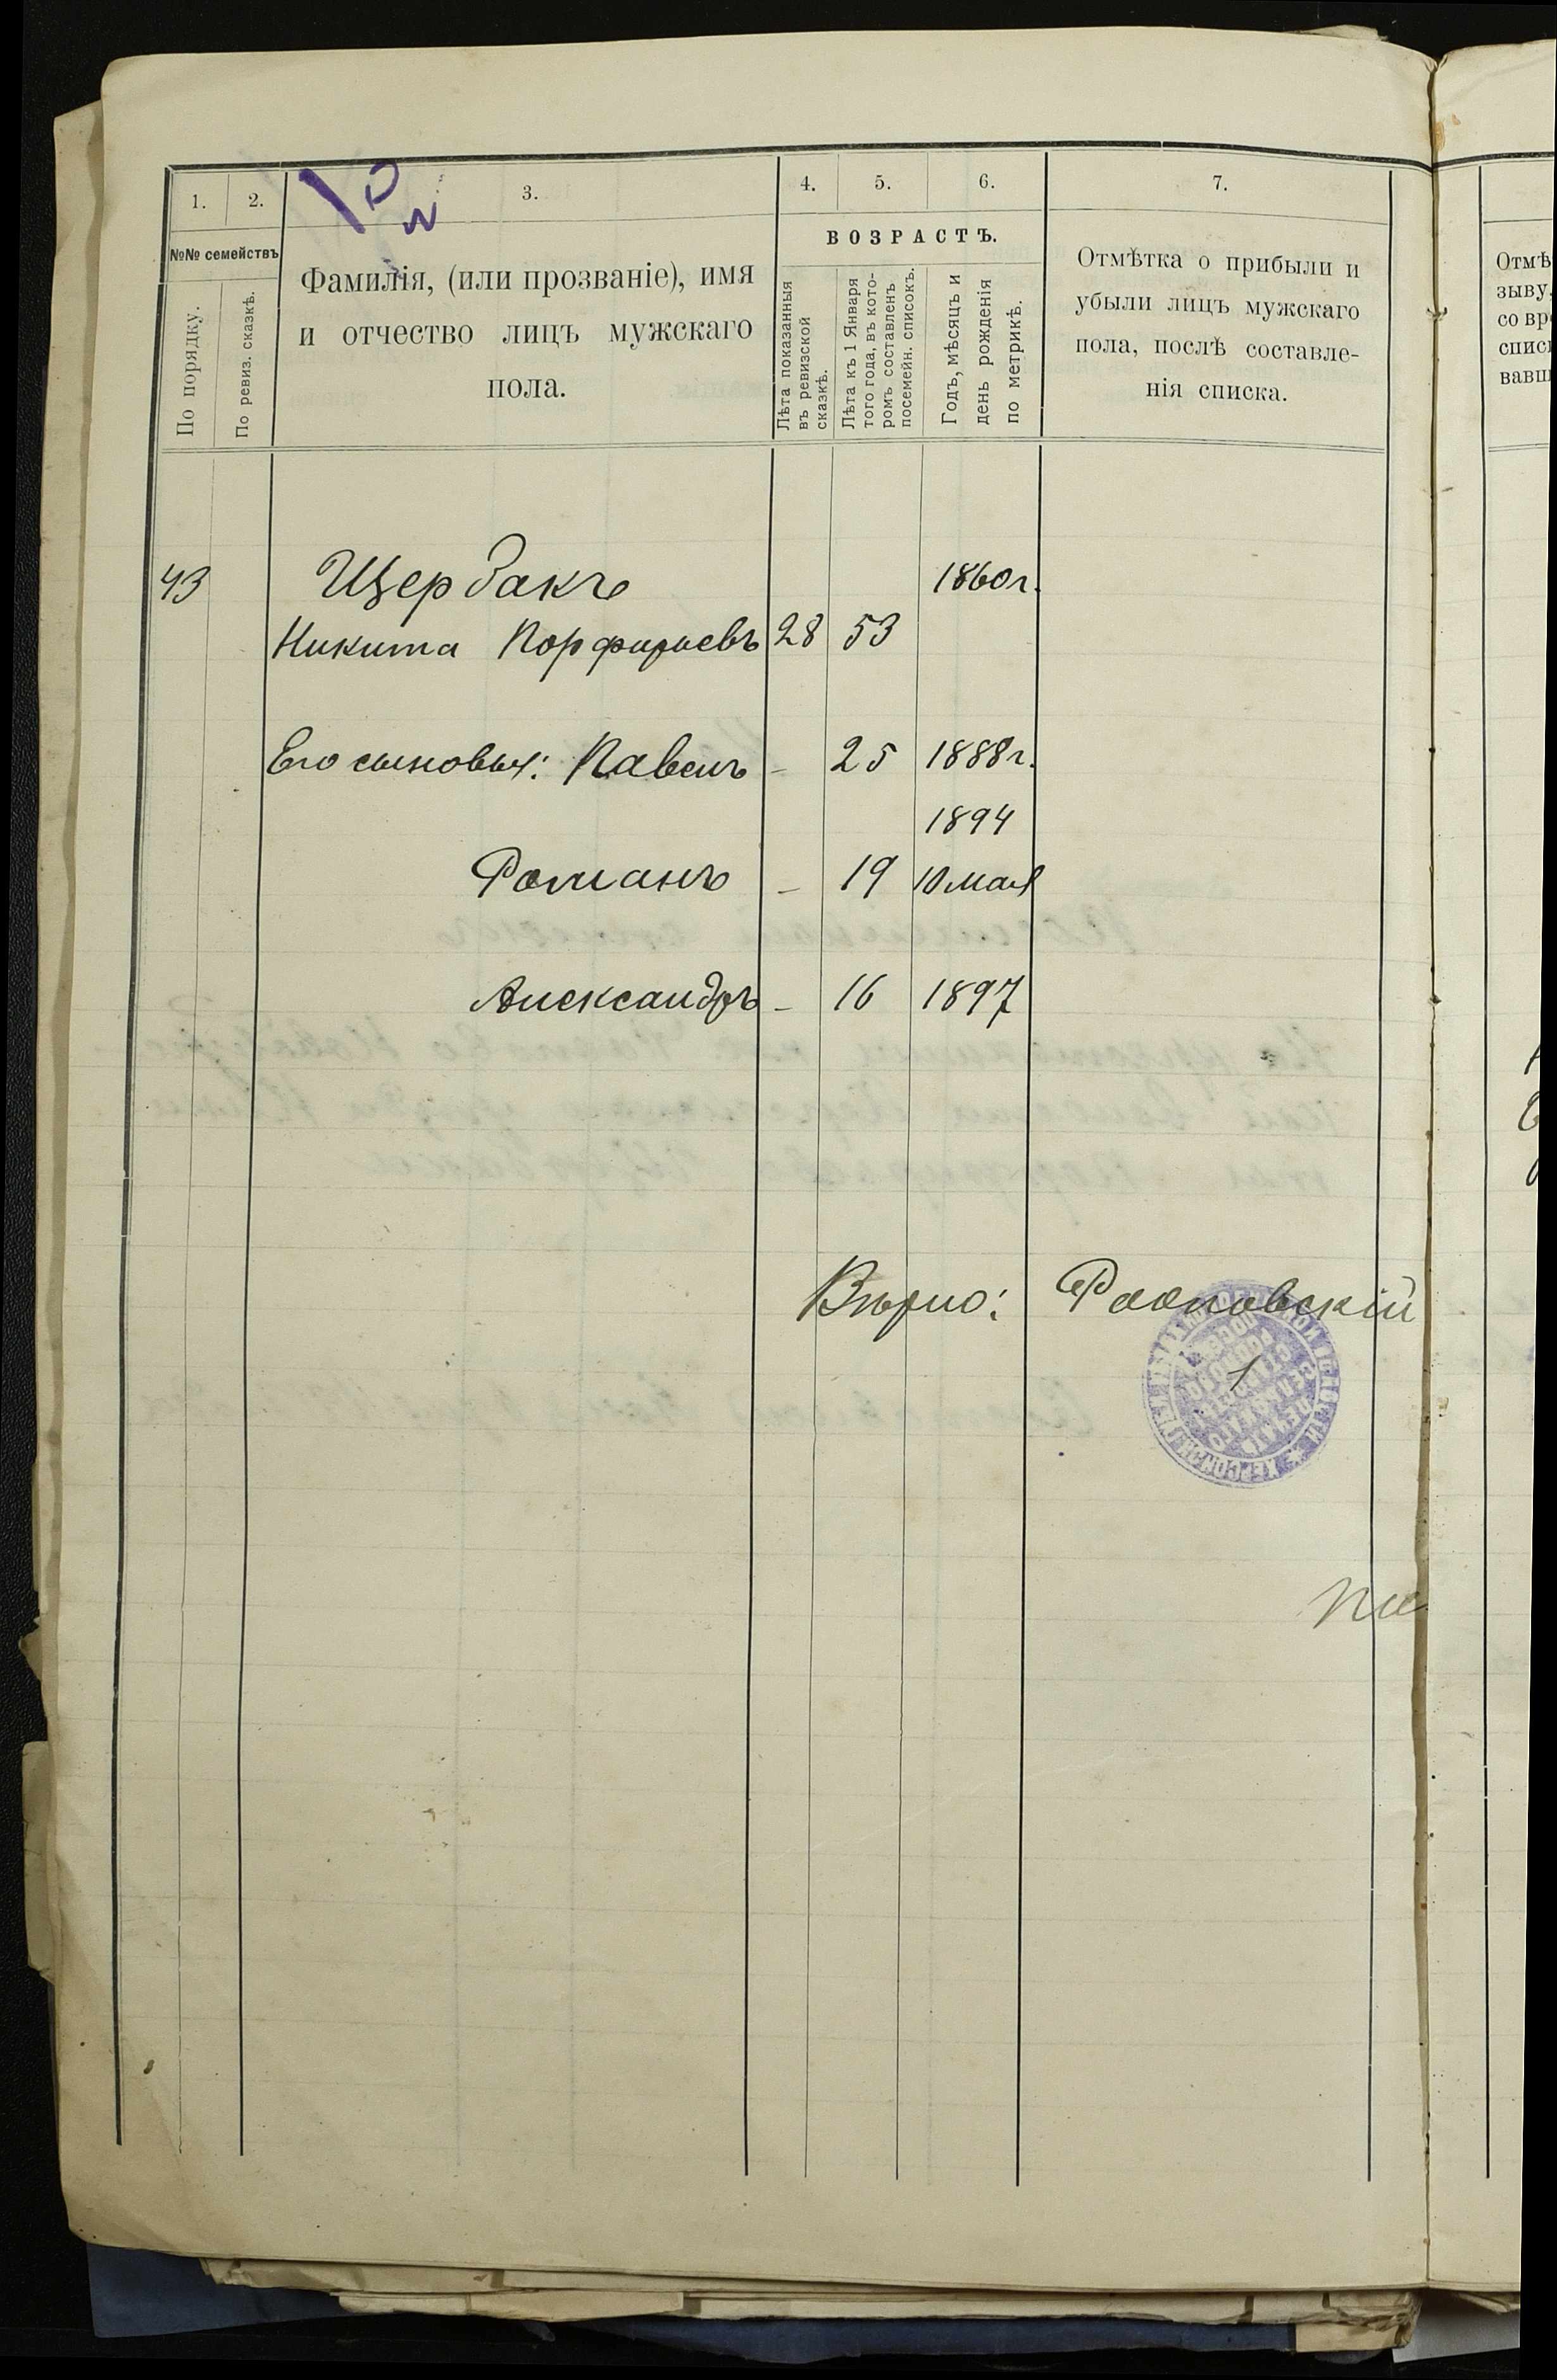 1. 2. 3. 4. 5. 6. 7.
№№ семействъ
По порядку.
По ревиз. сказкѣ.
Фамилія, (или прозваніе), имя
и отчество лицъ мужскаго
пола.
ВОЗРАСТЪ.
Лѣта показанныя
въ ревизской
сказкѣ.
Лѣта къ 1 Января
того года, въ кото-
ромъ составленъ
посемейн. списокъ.
Годъ, мѣсяцъ и
день рожденія
по метрикѣ.
Отмѣтка о прибыли и
убыли лицъ мужскаго
пола, послѣ составле-
нія списка.
43 Щербакъ 1860 г.
Никита Порфирьевъ 28 53
Его сыновья: Павелъ - 25 1888 г.
1894
Романъ - 19 10 мая
Александръ - 16 1897
Вѣрно:
Отмѣ
зыву,
со вре
списк
вавш